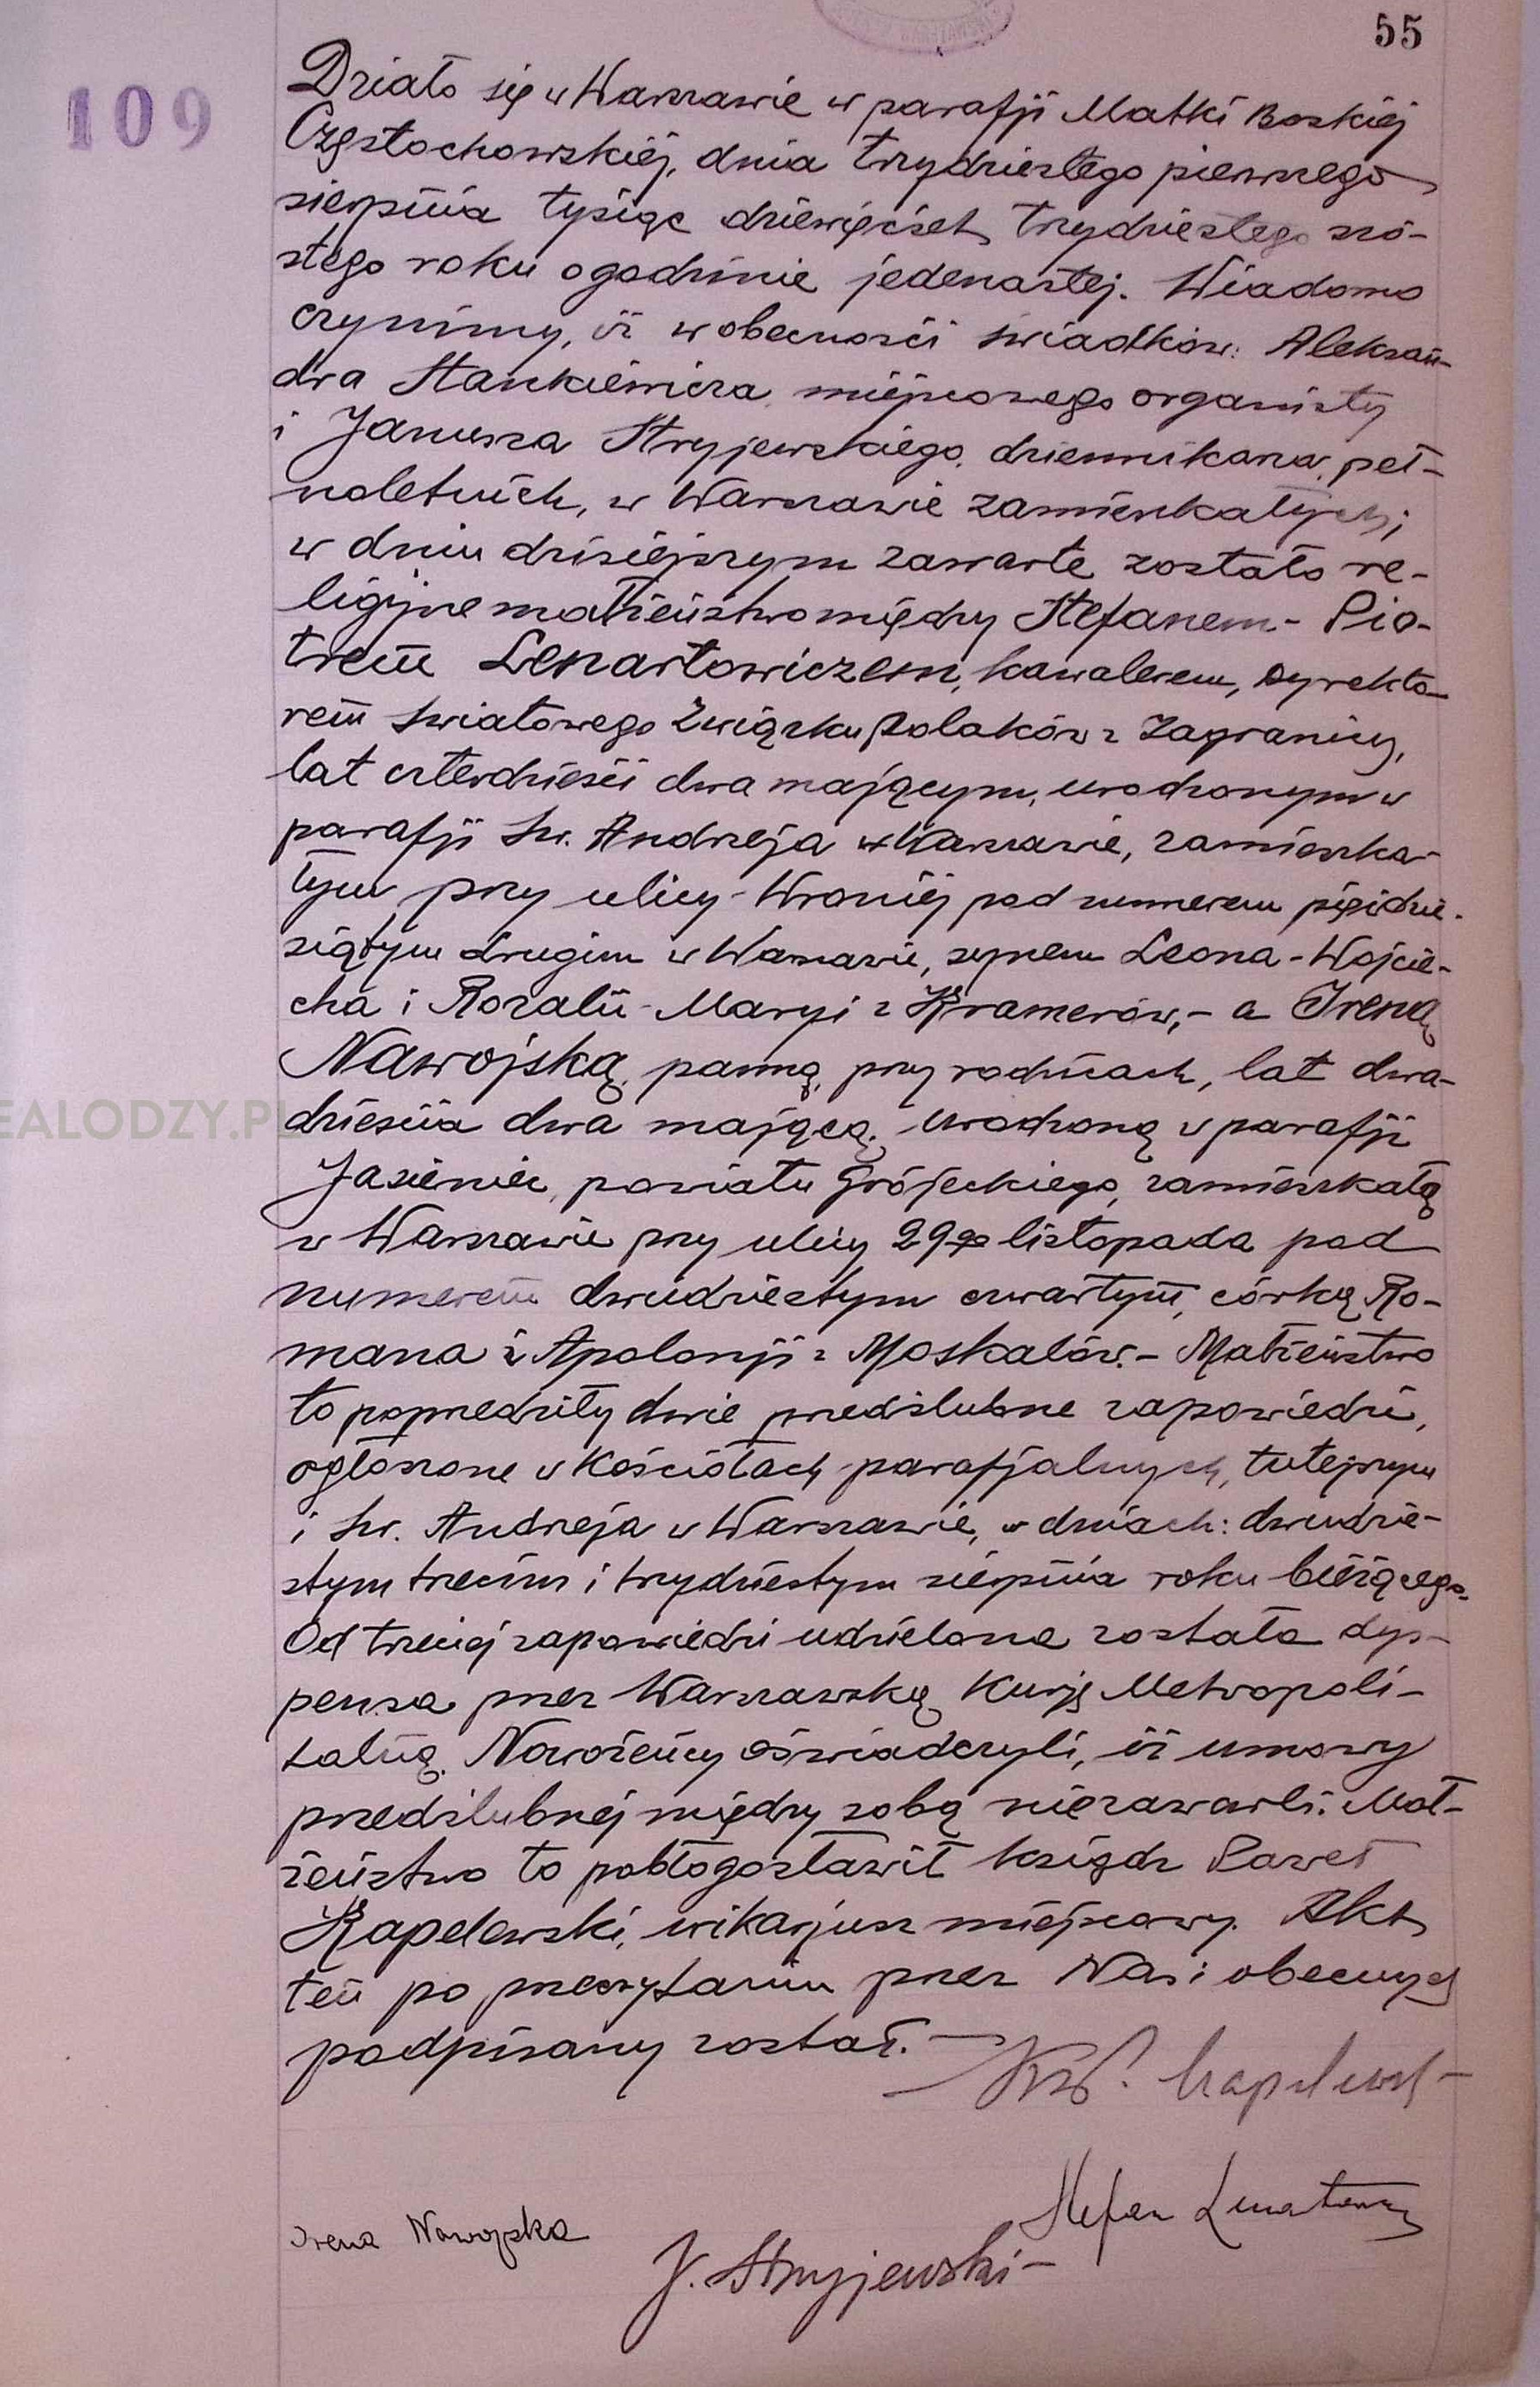 55
109
Działo się w Warszawie w parafji Matki Boskiej
Częstochowskiej, dnia trzydziestego pierwszego
sierpnia tysiąc dziewięćset trzydziestego szó-
stego roku o godzinie jedenastej. Wiadomo
czynimy, iż w obecności świadków: Aleksan-
dra Stankiewicza miejscowego organisty
i Janusza Stryjewskiego, dziennikarza, peł-
noletnich, w Warszawie zamieszkałych;
w dniu dzisiejszym zawarte zostało re-
ligijne małżeństwo między Stefanem-Pio-
trem Lenartowiczem, kawalerem, Dyrekto-
rem światowego Związku Polaków z Zagranicy,
lat czterdzieści dwa mającym, urodzonym w
parafji św. Andrzeja w Warszawie, zamieszka-
łym przy ulicy Wroniej pod numerem pięćdzie-
siątym drugim w Warszawie, synem Leona-Wojcie-
cha i Rozalii-Maryi z Kramerów,- a Ireną
Nawojską, panną, przy rodzicach, lat dwa-
dzieścia dwa mającą, urodzoną w parafji
Jasieniec, powiatu Grójeckiego, zamieszkałą
w Warszawie przy ulicy 29go listopada pod
numerem dwudziestym czwartym, córką Ro-
mana i Apolonji z Moskalów.- Małżeństwo
to poprzedziły dwie przedślubne zapowiedzi,
ogłoszone w Kościołach parafjalnych, tutejszym
i św. Andrzeja w Warszawie, w dniach: dwudzie-
stym trzecim i trzydziestym sierpnia roku bieżącego.
Od trzeciej zapowiedzi udzielona została dys-
pensa przez Warszawską Kurję Metropoli-
talną. Nowożeńcy oświadczyli, iż umowy
przedślubnej między sobą nie zawarli. Mał-
żeństwo to pobłogosławił ksiądz Paweł
Kapelewski, wikarjusz miejscowy. Akt
ten po przeczytaniu przez Nas i obecnych
podpisany został.-
Ks P. Kapelewski
Stefan Lenartowicz
Irena Nawojska
J. Stryjewski
EALODZY.PL